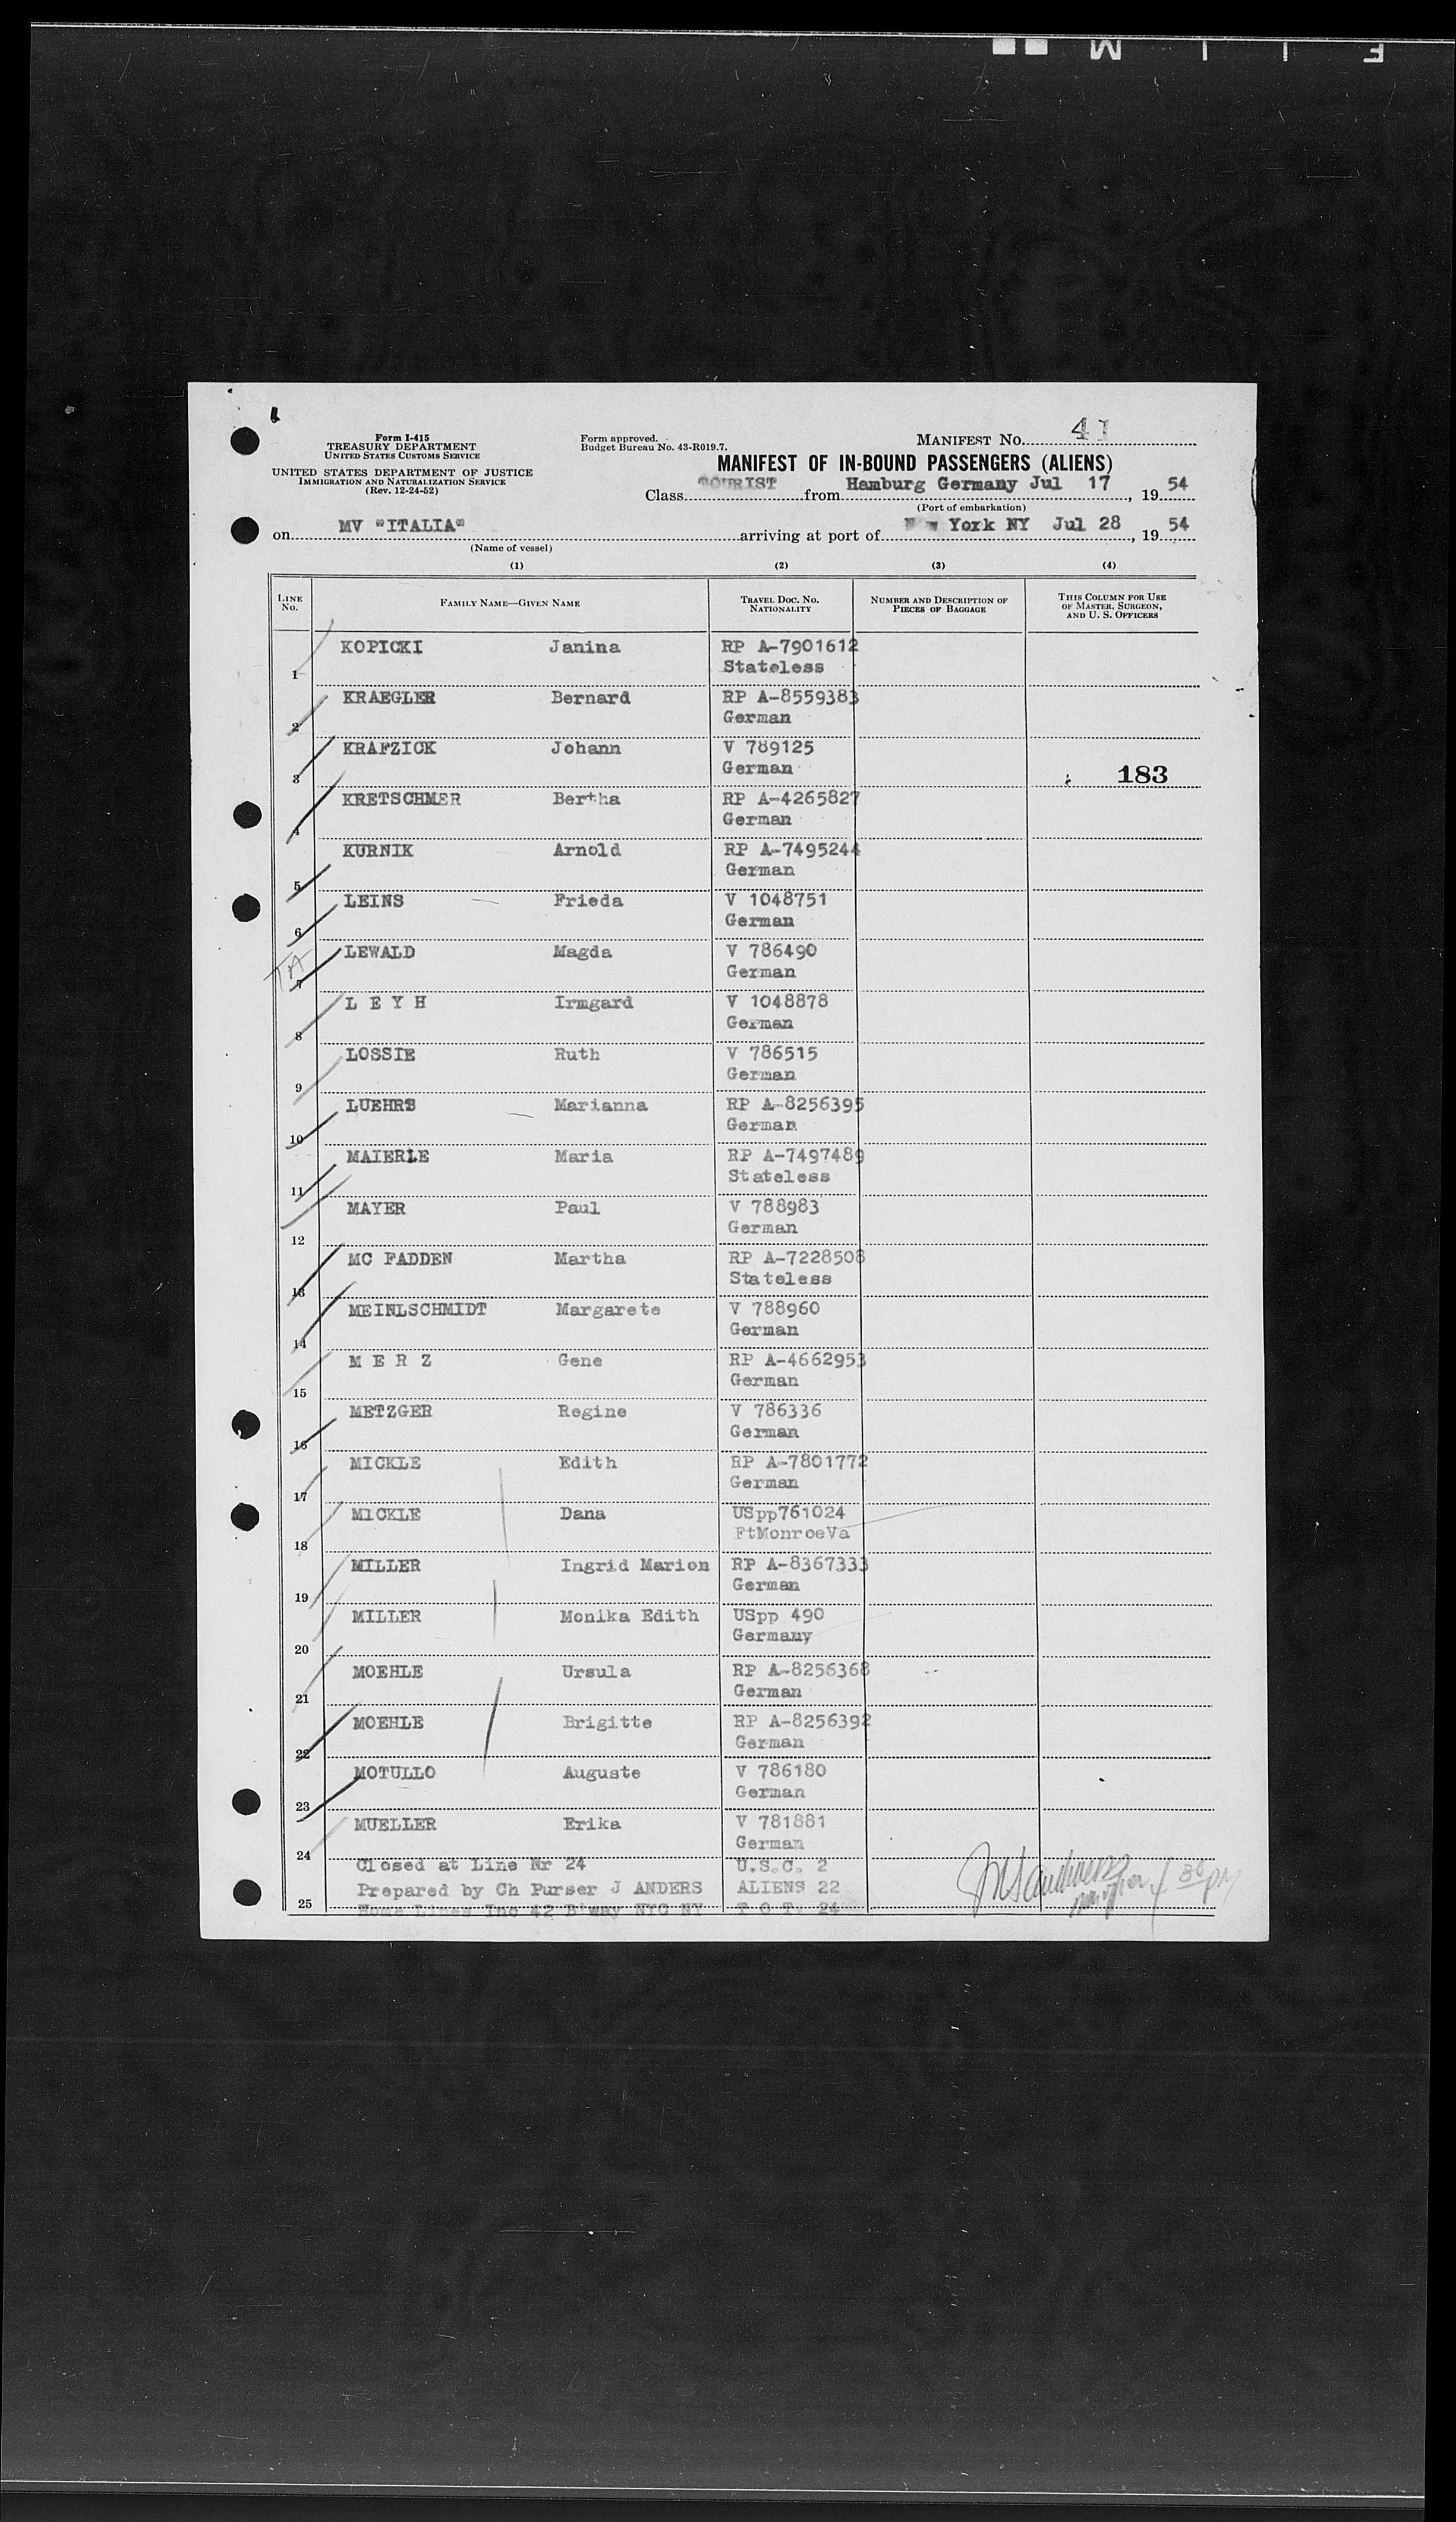 F I L M
Form I-415
TREASURY DEPARTMENT
UNITED STATES CUSTOMS SERVICE
UNITED STATES DEPARTMENT OF JUSTICE
IMMIGRATION AND NATURALIZATION SERVICE
(Rev. 12-24-52)
Form approved.
Budget Bureau No. 43-R019.7.
MANIFEST NO. 41
MANIFEST OF IN-BOUND PASSENGERS (ALIENS)
Class TOURIST from Hamburg Germany Jul 17, 19 54
(Port of embarkation)
on MV "ITALIA" arriving at port of New York NY Jul 28, 19 54
(Name of vessel)
(1) (2) (3) (4)
LINE NO. FAMILY NAME—GIVEN NAME TRAVEL DOC. NO. NATIONALITY NUMBER AND DESCRIPTION OF PIECES OF BAGGAGE THIS COLUMN FOR USE OF MASTER, SURGEON, AND U. S. OFFICERS
KOPICKI Janina RP A-7901612
1 Stateless
KRAEGLER Bernard RP A-8559383
2 German
KRAFZICK Johann V 789125
3 German 183
KRETSCHMER Bertha RP A-4265827
4 German
KURNIK Arnold RP A-7495244
5 German
LEINS Frieda V 1048751
6 German
TA
LEWALD Magda V 786490
7 German
L E Y H Irmgard V 1048878
8 German
LOSSIE Ruth V 786515
9 German
LUEHRS Marianna RP A-8256395
10 German
MAIERLE Maria RP A-7497489
11 Stateless
MAYER Paul V 788983
12 German
MC FADDEN Martha RP A-7228508
13 Stateless
MEINLSCHMIDT Margarete V 788960
14 German
M E R Z Gene RP A-4662953
15 German
METZGER Regine V 786336
16 German
MICKLE Edith RP A-7801772
17 German
MICKLE Dana USpp761024
18 FtMonroeVa
MILLER Ingrid Marion RP A-8367333
19 German
MILLER Monika Edith USpp 490
20 Germany
MOEHLE Ursula RP A-8256368
21 German
MOEHLE Brigitte RP A-8256392
22 German
MOTULLO Auguste V 786180
23 German
MUELLER Erika V 781881
24 German
Closed at Line Nr 24 U.S.C. 2
Prepared by Ch Purser J ANDERS ALIENS 22
25 Home Lines Inc 42 B'way NYC NY T O T: 24